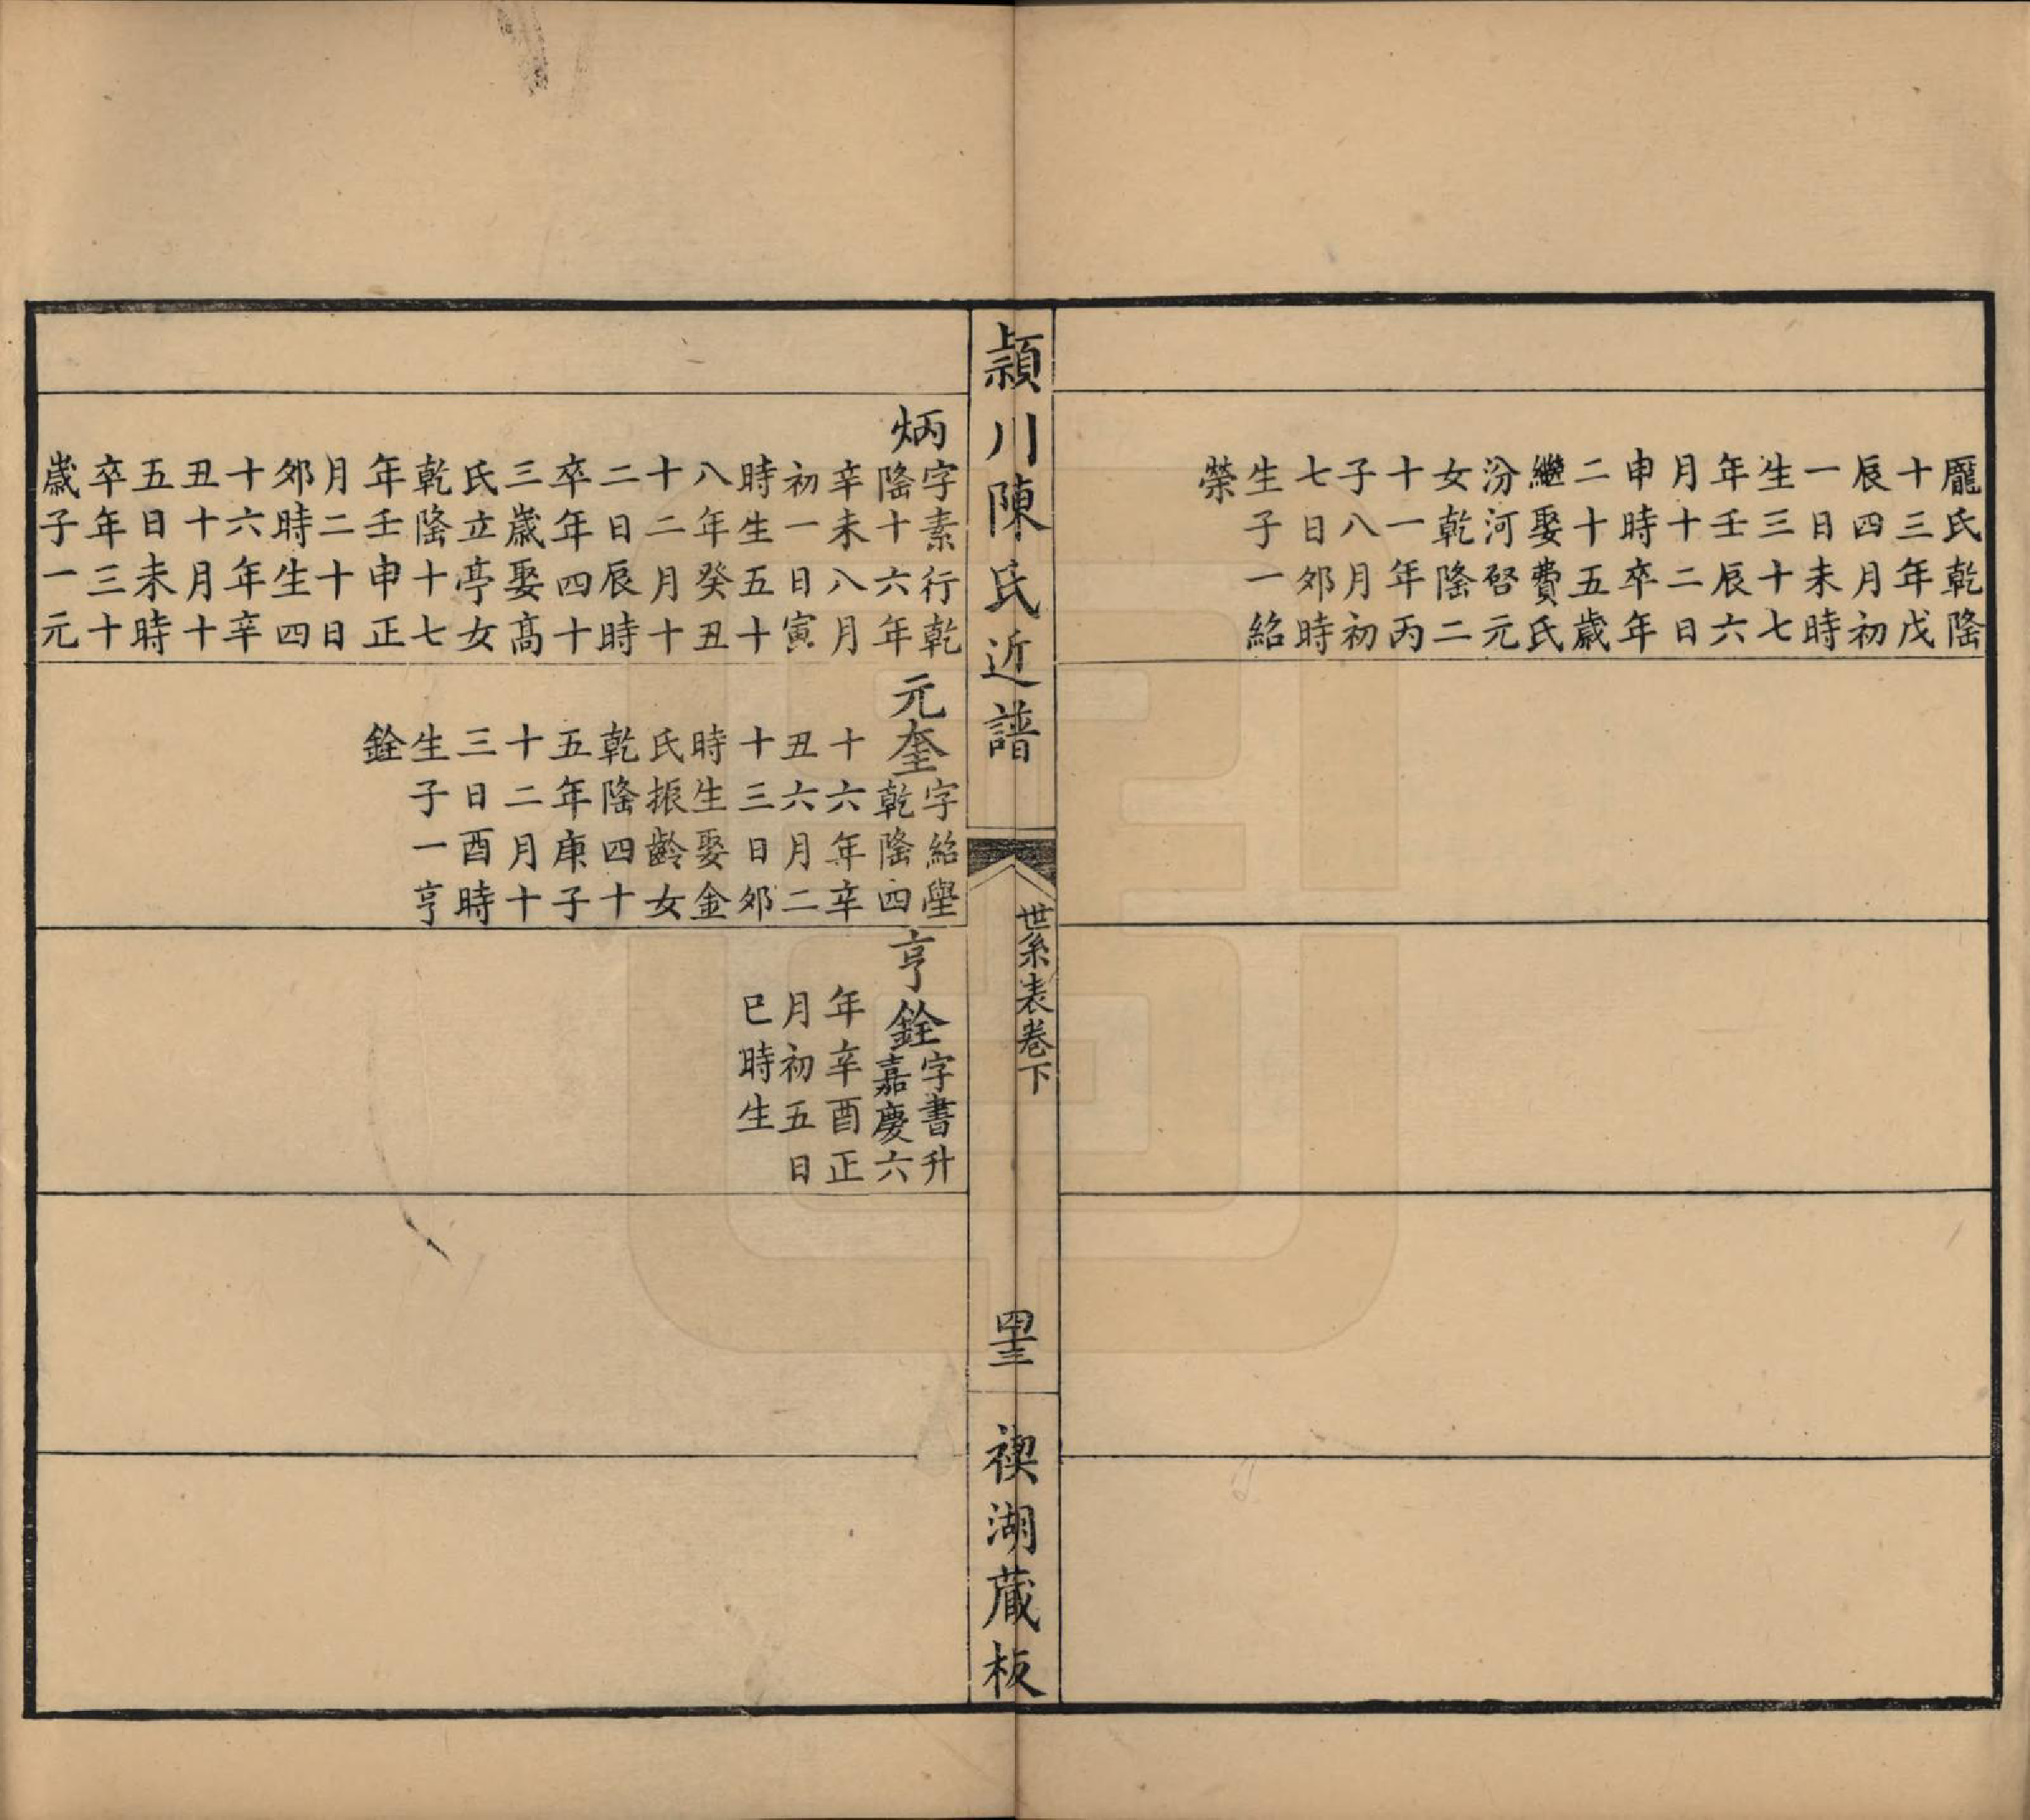 龎氏乾隆
十三年戊
辰四月初
一日未時
生三十七
年壬辰六
月十二日
申時卒年
二十五歲
繼娶費氏
汾河啓元
女乾隆二
十一年丙
子八月初
七日夘時
生子一紹
榮
潁川陳氏近譜
世系表卷下
四十三
禊湖藏板
炳
字素行乾
隆十六年
辛未八月
初一日寅
時生五十
八年癸丑
十二月十
二日辰時
卒年四十
三歲娶高
氏立亭女
乾隆十七
年壬申正
月二十日
夘時生四
十六年辛
丑十月十
五日未時
卒年三十
歲子一元
元奎
字紹壆
乾隆四
十六年辛
丑六月二
十三日夘
時生娶金
氏振齡女
乾隆四十
五年庚子
十二月十
三日酉時
生子一亨
銓
亨銓
字書升
嘉慶六
年辛酉正
月初五日
巳時生